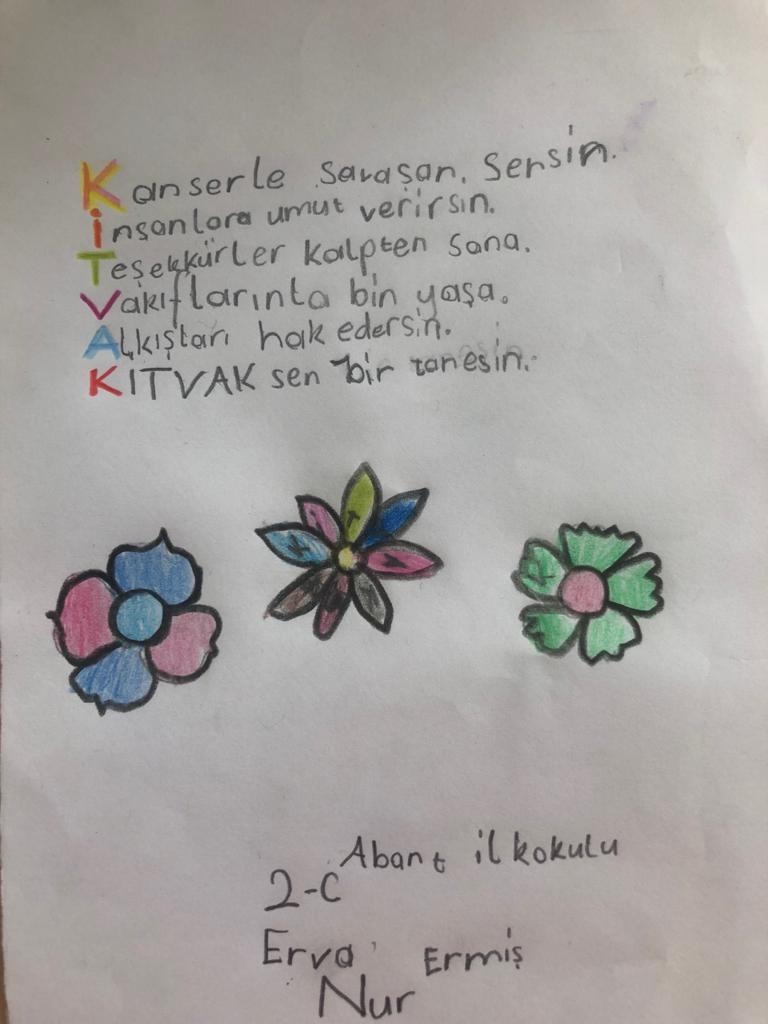 Kanserle savaşan, sensin.
İnsanlara umut verirsin.
Teşekkürler kalpten sana.
Vakıflarınta bin yaşa.
Alkışları hak edersin.
KITVAK sen bir tanesin.
Abant ilkokulu
2-C
Erva Ermiş
Nur